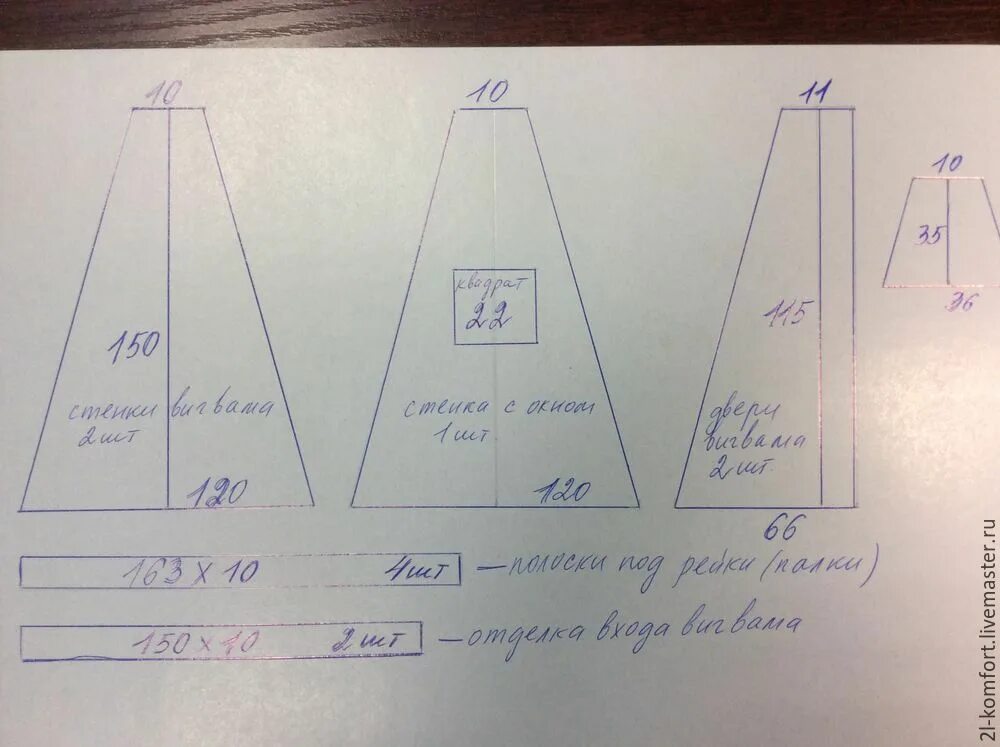 10
150
стенки вигвама
2шт
120
10
квадрат
22
стенка с окном
1шт
120
11
115
двери
вигвама
2 шт.
66
10
35
36
163 х 10 4шт — полоски под рейки (палки)
150 х 10 2шт — отделка входа вигвама
2l-komfort.livemaster.ru